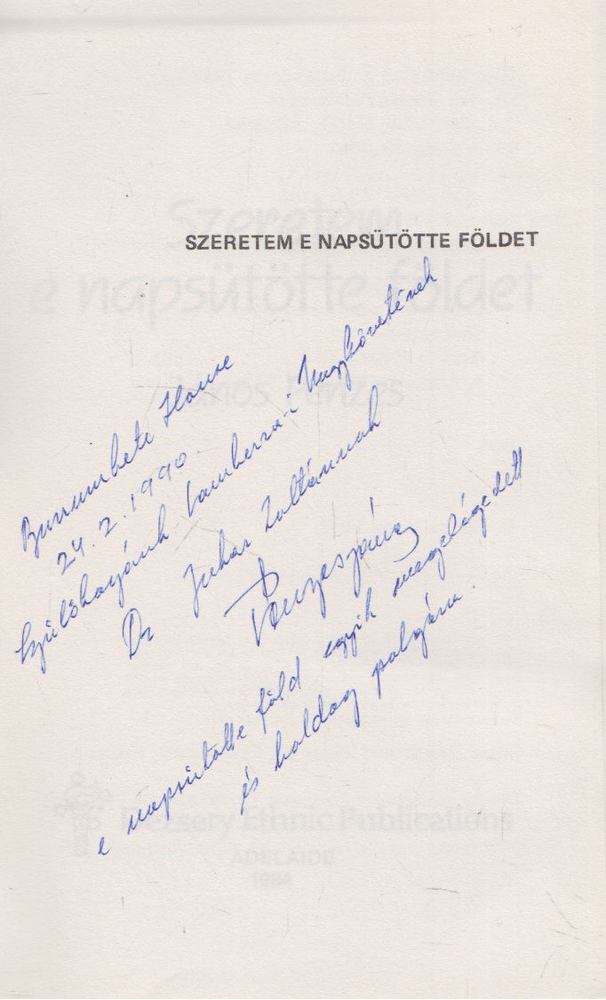 SZERETEM E NAPSÜTÖTTE FÖLDET
Burrumbete House
24.2.1990
Szülőhazánk Camberra-i Nagykövetének
Dr Juhar Zoltánnak
Pénzes János
e napsütötte föld egyik megelégedett
és boldog polgára.
Szeretem
e napsütötte földet
János Pénzes
Dezsery Ethnic Publications
ADELAIDE
1984